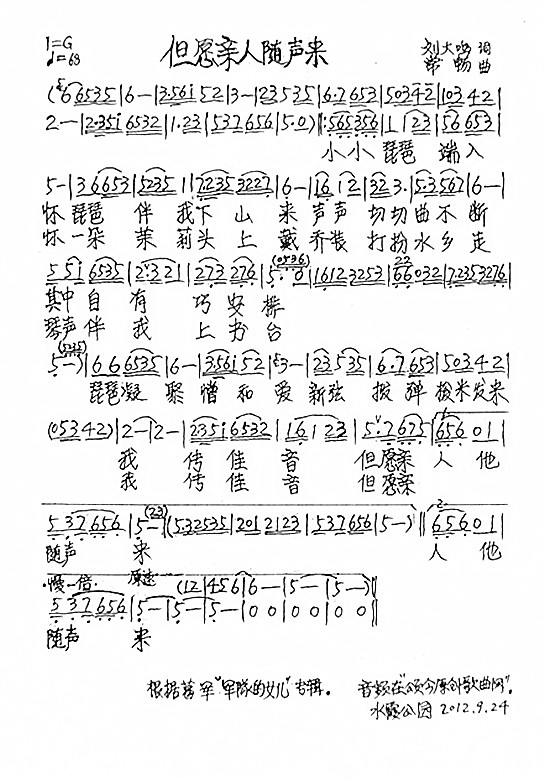 1=G
♩=68
但愿亲人随声来
刘大鸣 词
常畅 曲
(6 6535 | 6 — | 3·561 52 | 3 — | 23 535 | 6·7 653 | 5034 2 | 103 42 |
2 — | 2·351 6532 | 1·23 | 537656 | 5·0) ‖: 565356 | 1 1 23 | 56 653 |
小小 琵琶 端入
5 — | 3 6653 | 5235 1 | 7235 3227 | 6 — | 16 12 | 32 3· | 5·3567 | 6 — |
怀 琵琶 伴 我下 山 来 声声 切切 曲不 断
怀 一朵 茉 莉头 上 戴 乔装 打扮 水乡 走
5 51 6535 | 2·321 | 273 276 | 5·0 (0536) | 1612 3253 | 66 032 | 7235 3276 |
其中 自 有 巧安排
琴声 伴 我 上书台
5 — (5235) | 6 6 6535 | 6 — | 3561 52 | 3 — | 23 535 | 6·7 653 | 5034 2 |
琵琶凝 聚 憎 和 爱 新弦 拨弹 拨来发来
(0534 2) | 2 — | 2 — | 2351 6532 | 16 123 | 5·7 675 | 656 01 |
我 传佳 音 但愿亲 人 他
我 传佳 音 但愿亲
5 37656 | 5 — (23) | (5·32535 | 201 2123 | 537656 | 5 —) ‖ 656 01 |
随声 来 人 他
慢一倍 原速 (12 | 456 | 6 — | 5 — | 5 —) ‖
5 37656 | 5 — | 5 — | 5 — | 0 0 | 0 0 | 0 0 | 0 0 ‖
随声 来
根据 "军队的女儿" 专辑。
音频在"颂今原创歌曲网"。
水霞公园 2012.9.24